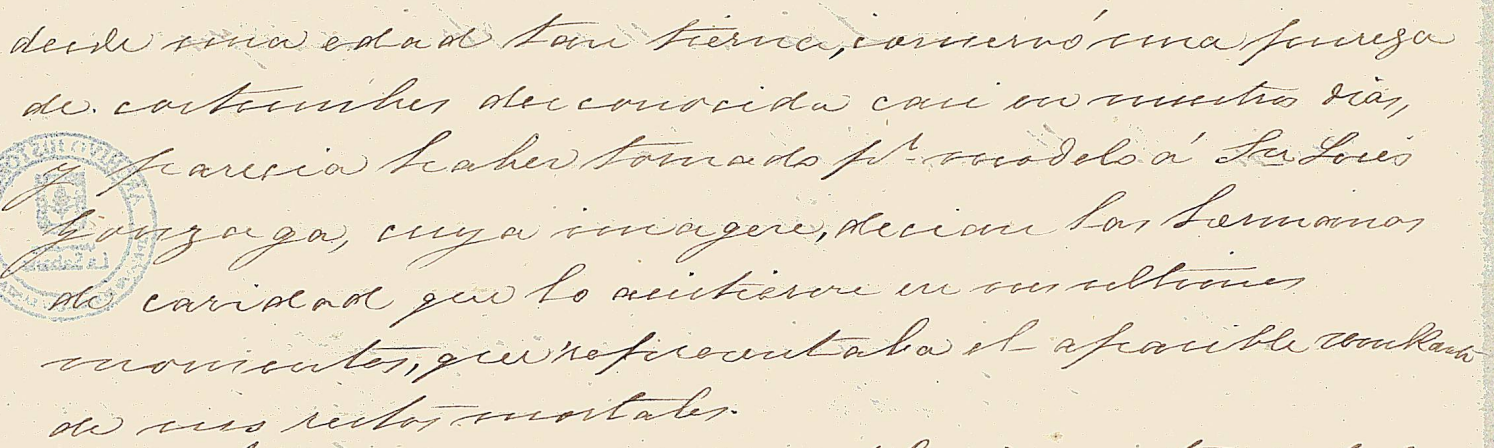 desde una edad tan tierna, conservó una pureza
de costumbres desconocida casi en nuestros dias,
y parecia haber tomado pr. modelo á Sn Luis
Gonzaga, cuya imagen, decian las hermanas
de caridad que lo asistieron en sus ultimos
momentos, que representaba el apacible semblante
de sus restos mortales.